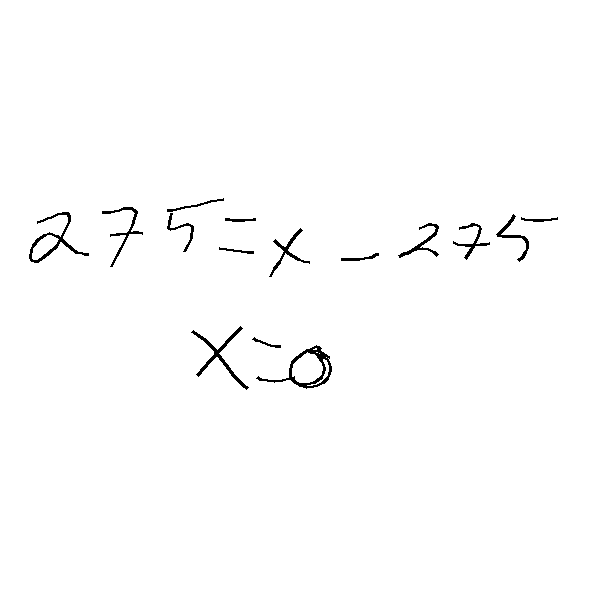 275=x-275
x=0